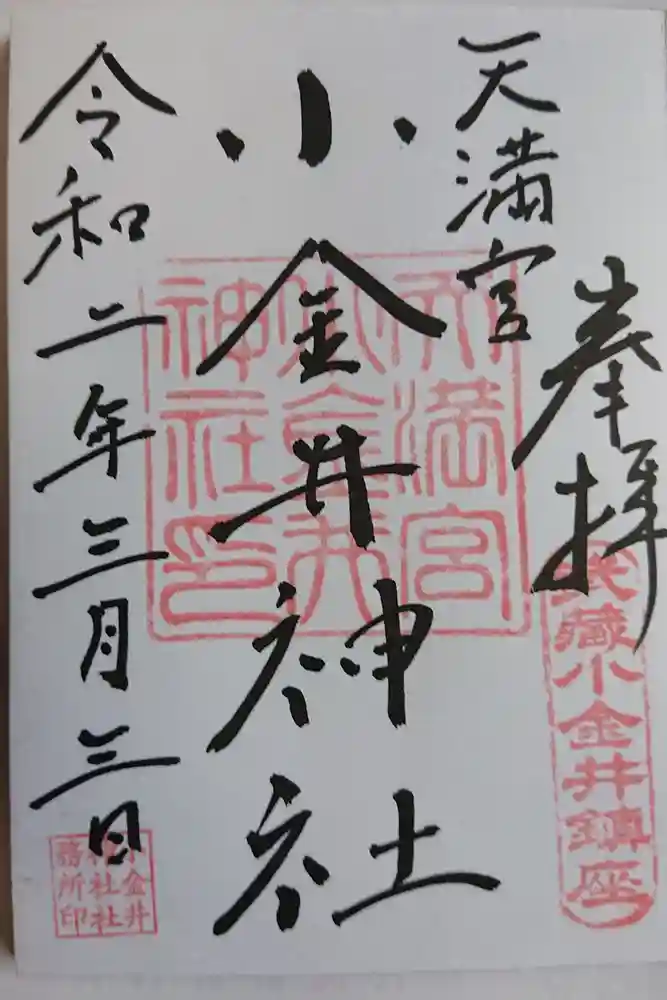 奉拝
武蔵小金井鎮座
天満宮
小金井神社
天満宮
小金井
神社印
令和二年三月三日
小金井
神社社
務所印